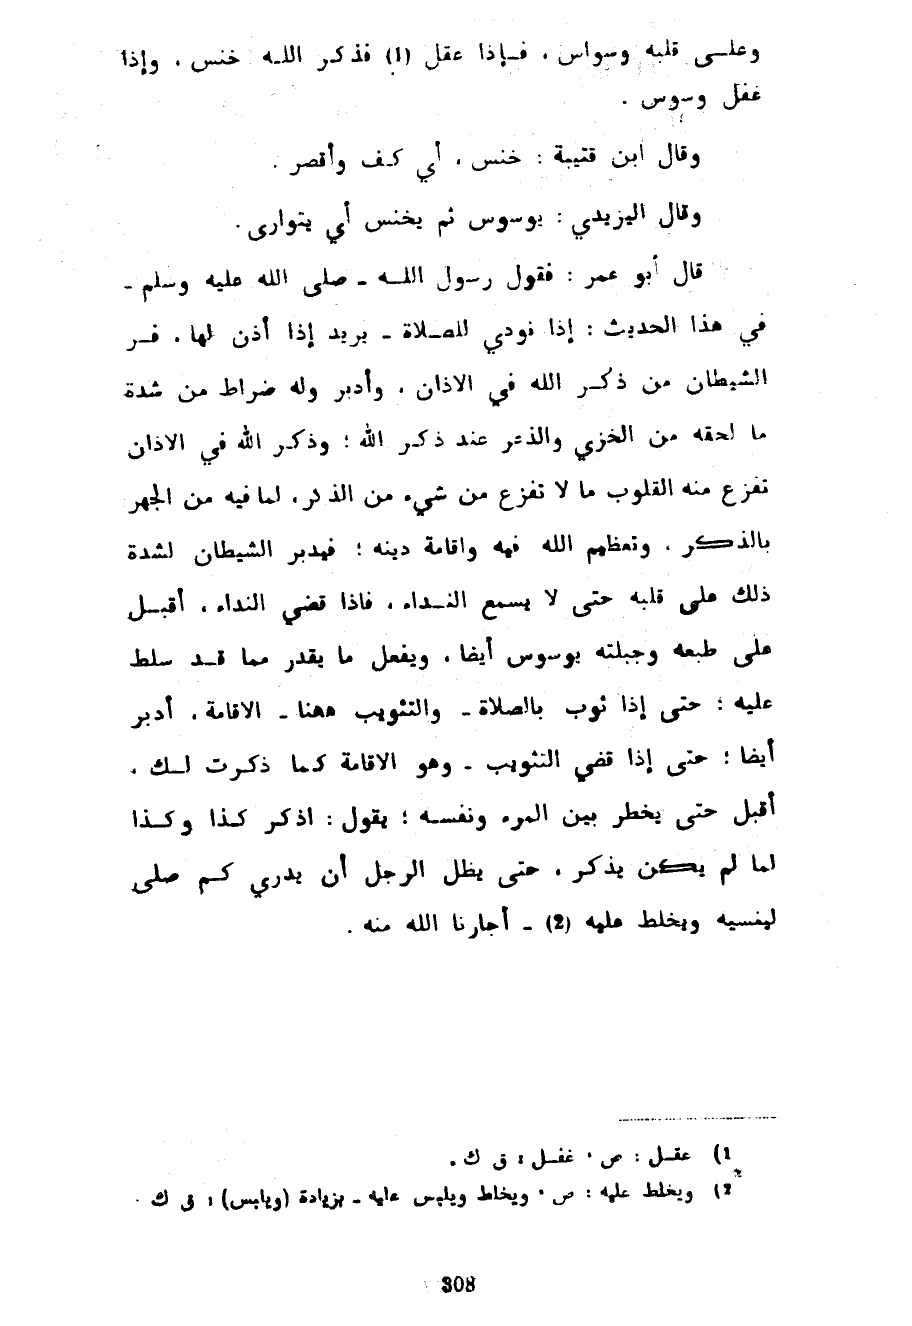 وعلى قلبه وسواس ، فإذا عقل (1) فذكر الله خنس ، وإذا
غفل وسوس .
وقال ابن قتيبة : خنس ، أي كف وأقصر .
وقال اليزيدي : يوسوس ثم يخنس أي يتوارى .
قال أبو عمر : فقول رسول الله - صلى الله عليه وسلم -
في هذا الحديث : إذا نودي للصلاة - يريد إذا أذن لها ، فر
الشيطان من ذكر الله في الاذان ، وأدبر وله ضراط من شدة
ما لحقه من الخزي والذعر عند ذكر الله ؛ وذكر الله في الاذان
تفزع منه القلوب ما لا تفزع من شيء من الذكر ، لما فيه من الجهر
بالذكر ، وتعظيم الله فيه واقامة دينه ؛ فيدبر الشيطان لشدة
ذلك على قلبه حتى لا يسمع النداء ، فاذا قضي النداء ، أقبل
على طبعه وجبلته يوسوس أيضا ، ويفعل ما يقدر مما قد سلط
عليه ؛ حتى إذا ثوب بالصلاة - والتثويب ههنا - الاقامة ، أدبر
أيضا ؛ حتى إذا قضي التثويب - وهو الاقامة كما ذكرت لك ،
أقبل حتى يخطر بين المرء ونفسه ؛ يقول : اذكر كذا وكذا
لما لم يكن يذكر ، حتى يظل الرجل أن يدري كم صلى
لينسيه ويخلط عليه (2) - أجارنا الله منه .
1) عقل : ص · غفل : ق ك .
2) ويخلط عليه : ص · ويخلط ويلبس عليه - بزيادة (ويلبس) : ق ك ·
308